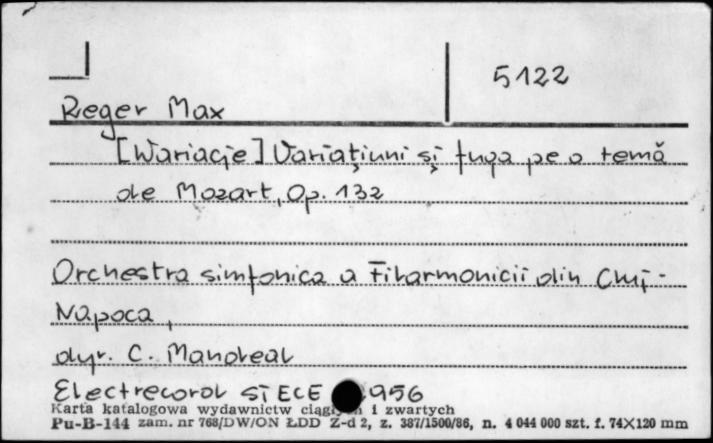 5122
Reger Max
[Wariacje] Variațiuni și fuga pe o temă
de Mozart, Op. 132
Orchestra simfonica a Filarmonicii din Cluj-
Napoca,
dyr. C. Mandeal
Electrecord ST ECE 956
Karta katalogowa wydawnictw i zwartych
Pu-B-144 zam. nr 768/DW/ON ŁDD Z-d 2, z. 387/1500/86, n. 4 044 000 szt. f. 74X120 mm